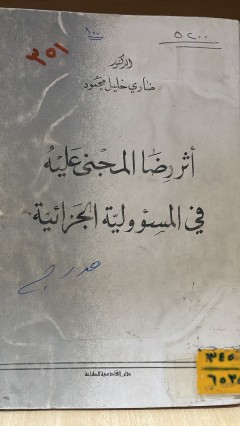 ٥٢٠٠
١٠٠
٣٥١
الدكتور
ضاري خليل محمود
أثر رضا المجنى عليه
في المسؤولية الجزائية
دار القادسية للطباعة
٣٤٥